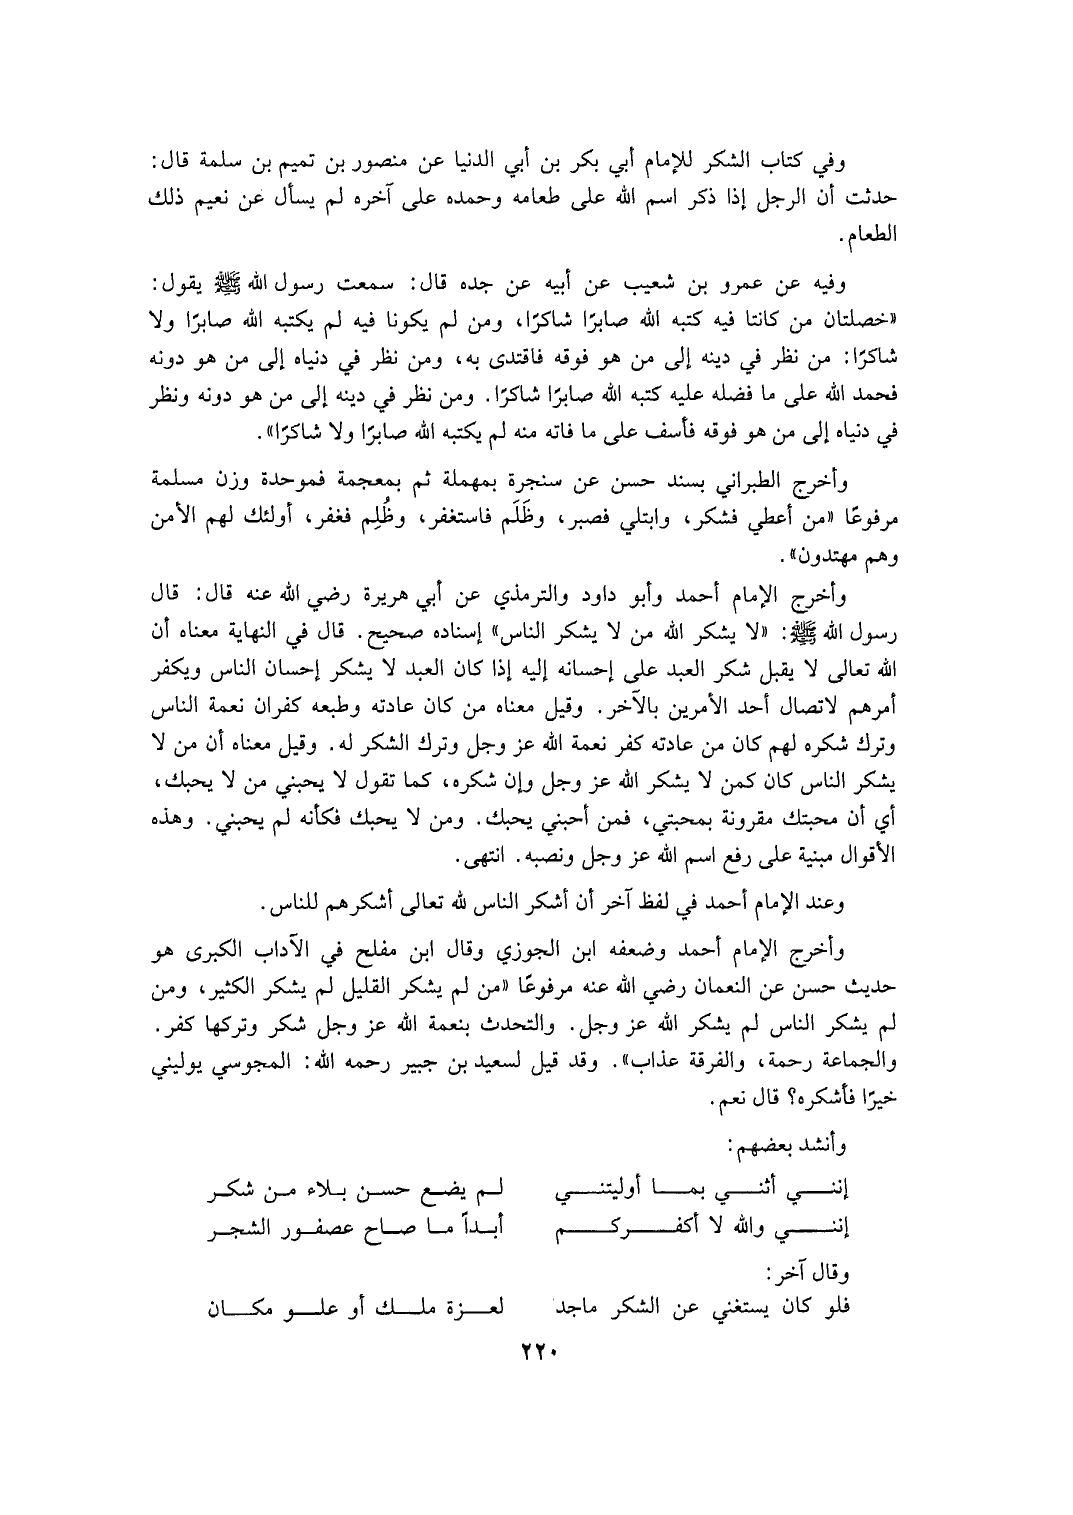 وفي كتاب الشكر للإمام أبي بكر بن أبي الدنيا عن منصور بن تميم بن سلمة قال:
حدثت أن الرجل إذا ذكر اسم الله على طعامه وحمده على آخره لم يسأل عن نعيم ذلك
الطعام.
وفيه عن عمرو بن شعيب عن أبيه عن جده قال: سمعت رسول الله ﷺ يقول:
«خصلتان من كانتا فيه كتبه الله صابرًا شاكرًا، ومن لم يكونا فيه لم يكتبه الله صابرًا ولا
شاكرًا: من نظر في دينه إلى من هو فوقه فاقتدى به، ومن نظر في دنياه إلى من هو دونه
فحمد الله على ما فضله عليه كتبه الله صابرًا شاكرًا. ومن نظر في دينه إلى من هو دونه ونظر
في دنياه إلى من هو فوقه فأسف على ما فاته منه لم يكتبه الله صابرًا ولا شاكرًا».
وأخرج الطبراني بسند حسن عن سنجرة بمهملة ثم بمعجمة فموحدة وزن مسلمة
مرفوعًا «من أعطي فشكر، وابتلي فصبر، وظَلَم فاستغفر، وظُلِم فغفر، أولئك لهم الأمن
وهم مهتدون».
وأخرج الإمام أحمد وأبو داود والترمذي عن أبي هريرة رضي الله عنه قال: قال
رسول الله ﷺ: «لا يشكر الله من لا يشكر الناس» إسناده صحيح. قال في النهاية معناه أن
الله تعالى لا يقبل شكر العبد على إحسانه إليه إذا كان العبد لا يشكر إحسان الناس ويكفر
أمرهم لاتصال أحد الأمرين بالآخر. وقيل معناه من كان عادته وطبعه كفران نعمة الناس
وترك شكره لهم كان من عادته كفر نعمة الله عز وجل وترك الشكر له. وقيل معناه أن من لا
يشكر الناس كان كمن لا يشكر الله عز وجل وإن شكره، كما تقول لا يحبني من لا يحبك،
أي أن محبتك مقرونة بمحبتي، فمن أحبني يحبك. ومن لا يحبك فكأنه لم يحبني. وهذه
الأقوال مبنية على رفع اسم الله عز وجل ونصبه. انتهى.
وعند الإمام أحمد في لفظ آخر أن أشكر الناس لله تعالى أشكرهم للناس.
وأخرج الإمام أحمد وضعفه ابن الجوزي وقال ابن مفلح في الآداب الكبرى هو
حديث حسن عن النعمان رضي الله عنه مرفوعًا «من لم يشكر القليل لم يشكر الكثير، ومن
لم يشكر الناس لم يشكر الله عز وجل. والتحدث بنعمة الله عز وجل شكر وتركها كفر.
والجماعة رحمة، والفرقة عذاب». وقد قيل لسعيد بن جبير رحمه الله: المجوسي يوليني
خيرًا فأشكره؟ قال نعم.
وأنشد بعضهم:
إننـــي أثنـــي بمـــا أوليتنـــي لـم يضـع حسـن بـلاء مـن شكـر
إننـــي والله لا أكفـــركـــم أبـداً مـا صـاح عصفـور الشجـر
وقال آخر:
فلو كان يستغني عن الشكر ماجد لعـــزة ملـــك أو علـــو مكـــان
٢٢٠